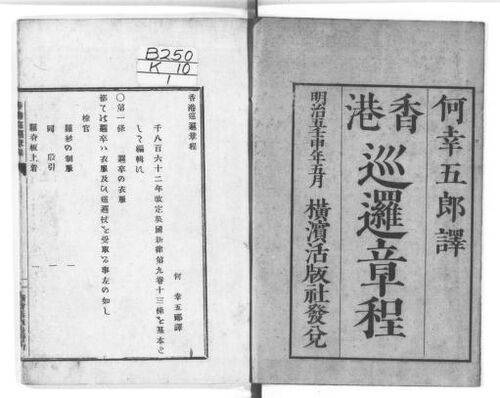 何幸五郎譯
香港巡邏章程
明治五壬申年五月 橫濱活版社發兌
B250
K 10
1
香港巡邏章程
何幸五郎譯
千八百六十二年改定英國新律第九卷十三條を基本と
して編輯に
〇第一條 邏卒の衣服
都ては邏卒ハ衣服及ひ巡邏杖を受取る事左の如し
檢官
羅紗の制服 一
同 股引 一
羅脊板上着 一